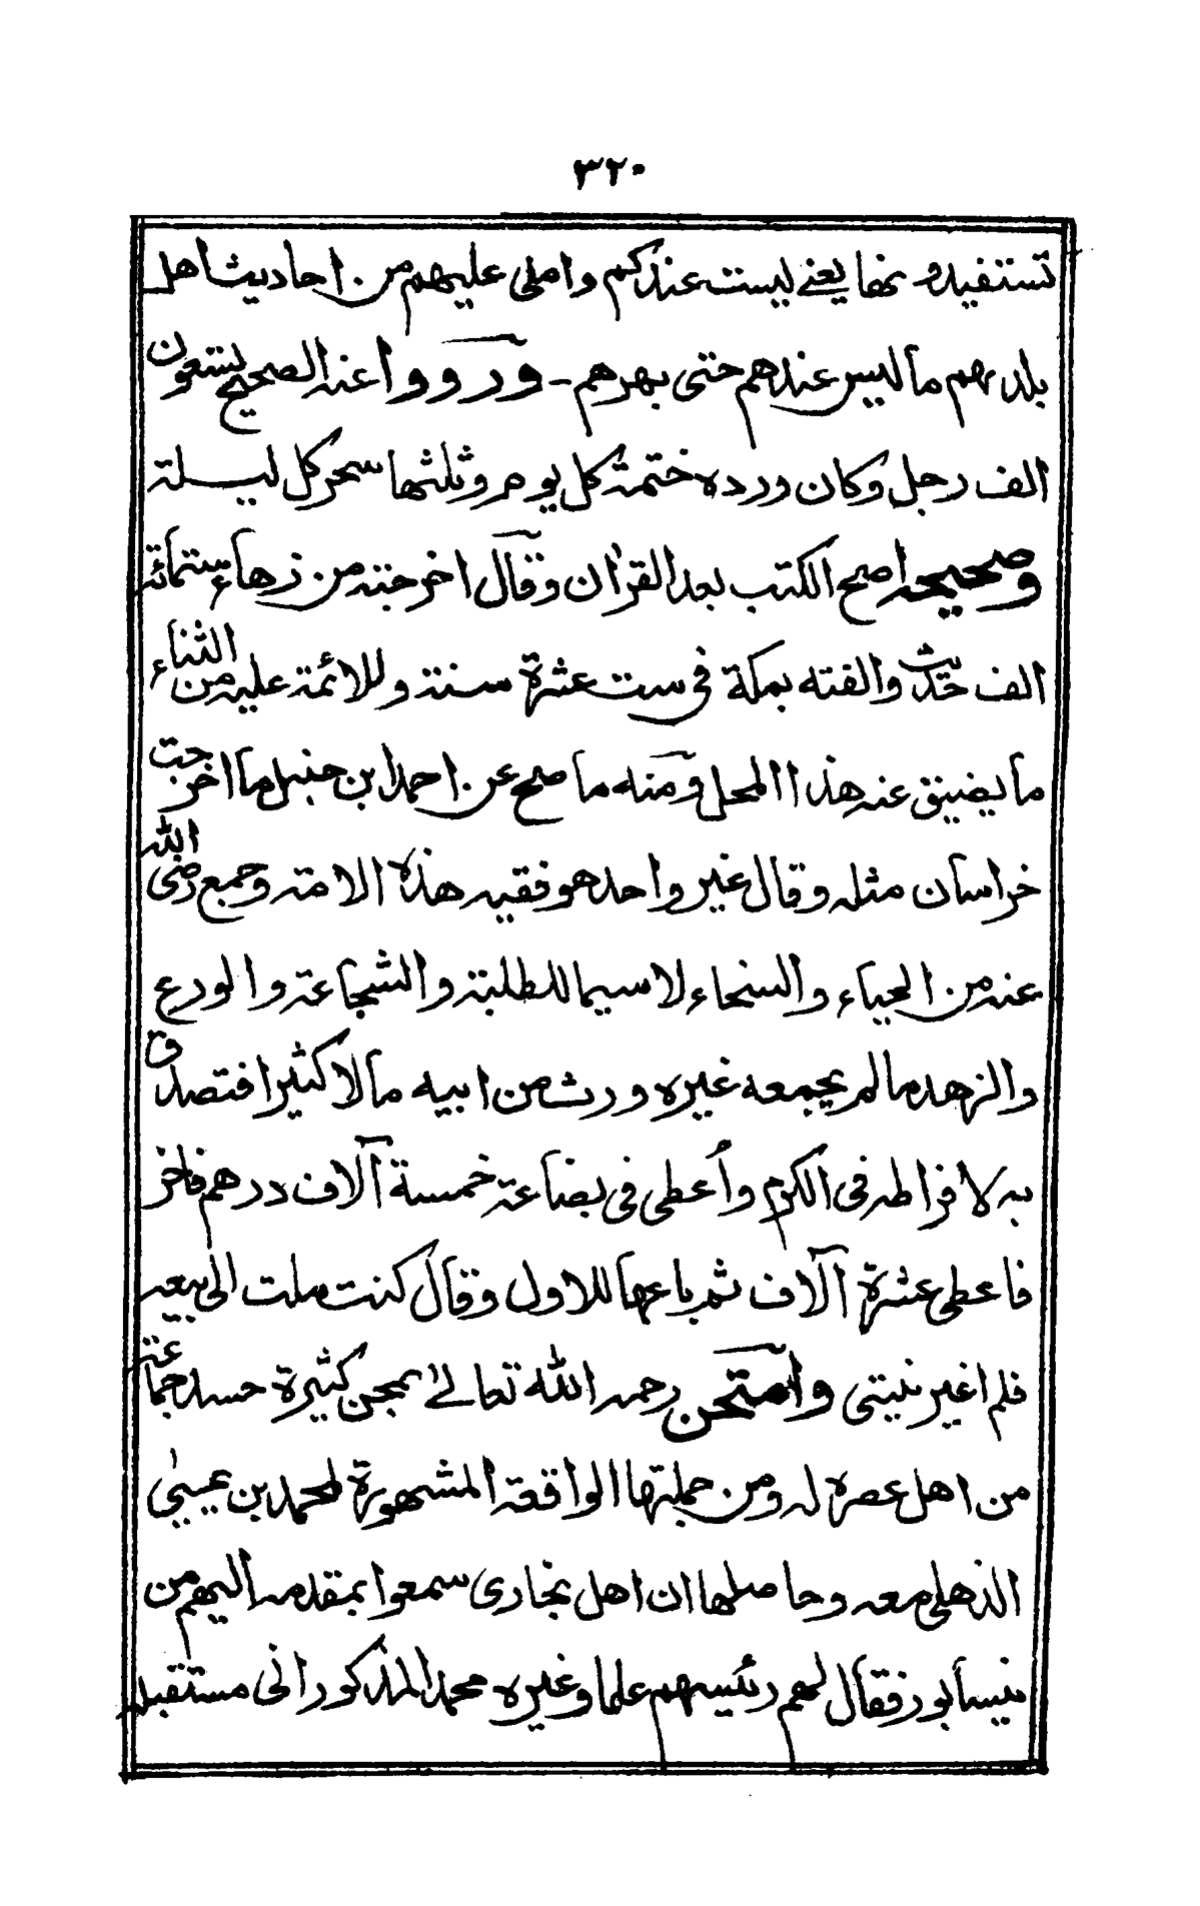 ٣٢٠
تستفيدونها يعنى ليست عندكم واملى عليهم من احاديث اهل
بلدهم ما ليس عندهم حتى بهرهم - ورووا عنه الصحيح تسعون
الف رجل وكان ورده ختمة كل يوم وثلثها سحر كل ليلة
وصحيحه اصح الكتب بعد القران وقال اخرجته من زهاء ستمائة
الف حديث والفته بمكة فى ست عشرة سنة وللائمة عليه من الثناء
ما يضيق عنه هذا المحل ومنه ما صح عن احمد ابن حنبل ما اخرجت
خراسان مثله وقال غير واحد هو فقيه هذه الامة وجمع رضى الله
عنه من الحياء والسخاء لا سيما للطلبة والشجاعة والورع
والزهد ما لم يجمعه غيره ورث من ابيه مالا كثيرا فتصدق
به لافراطه فى الكرم وأعطى فى بضاعة خمسة آلاف درهم فاخر
فاعطى عشرة آلاف ثم باعها للاول وقال كنت ملت الى بيعه
فلم اغير نيتى وامتحن رحمه الله تعالى بمحن كثيرة حسد جماعة
من اهل عصره له ومن جملتها الواقعة المشهورة لمحمد بن عيسى
الذهلى معه وحاصلها ان اهل بخارى سمعوا بمقدمه اليهم من
نيسابور فقال لهم رئيسهم علما وغيره محمد المذكور انى مستقبله